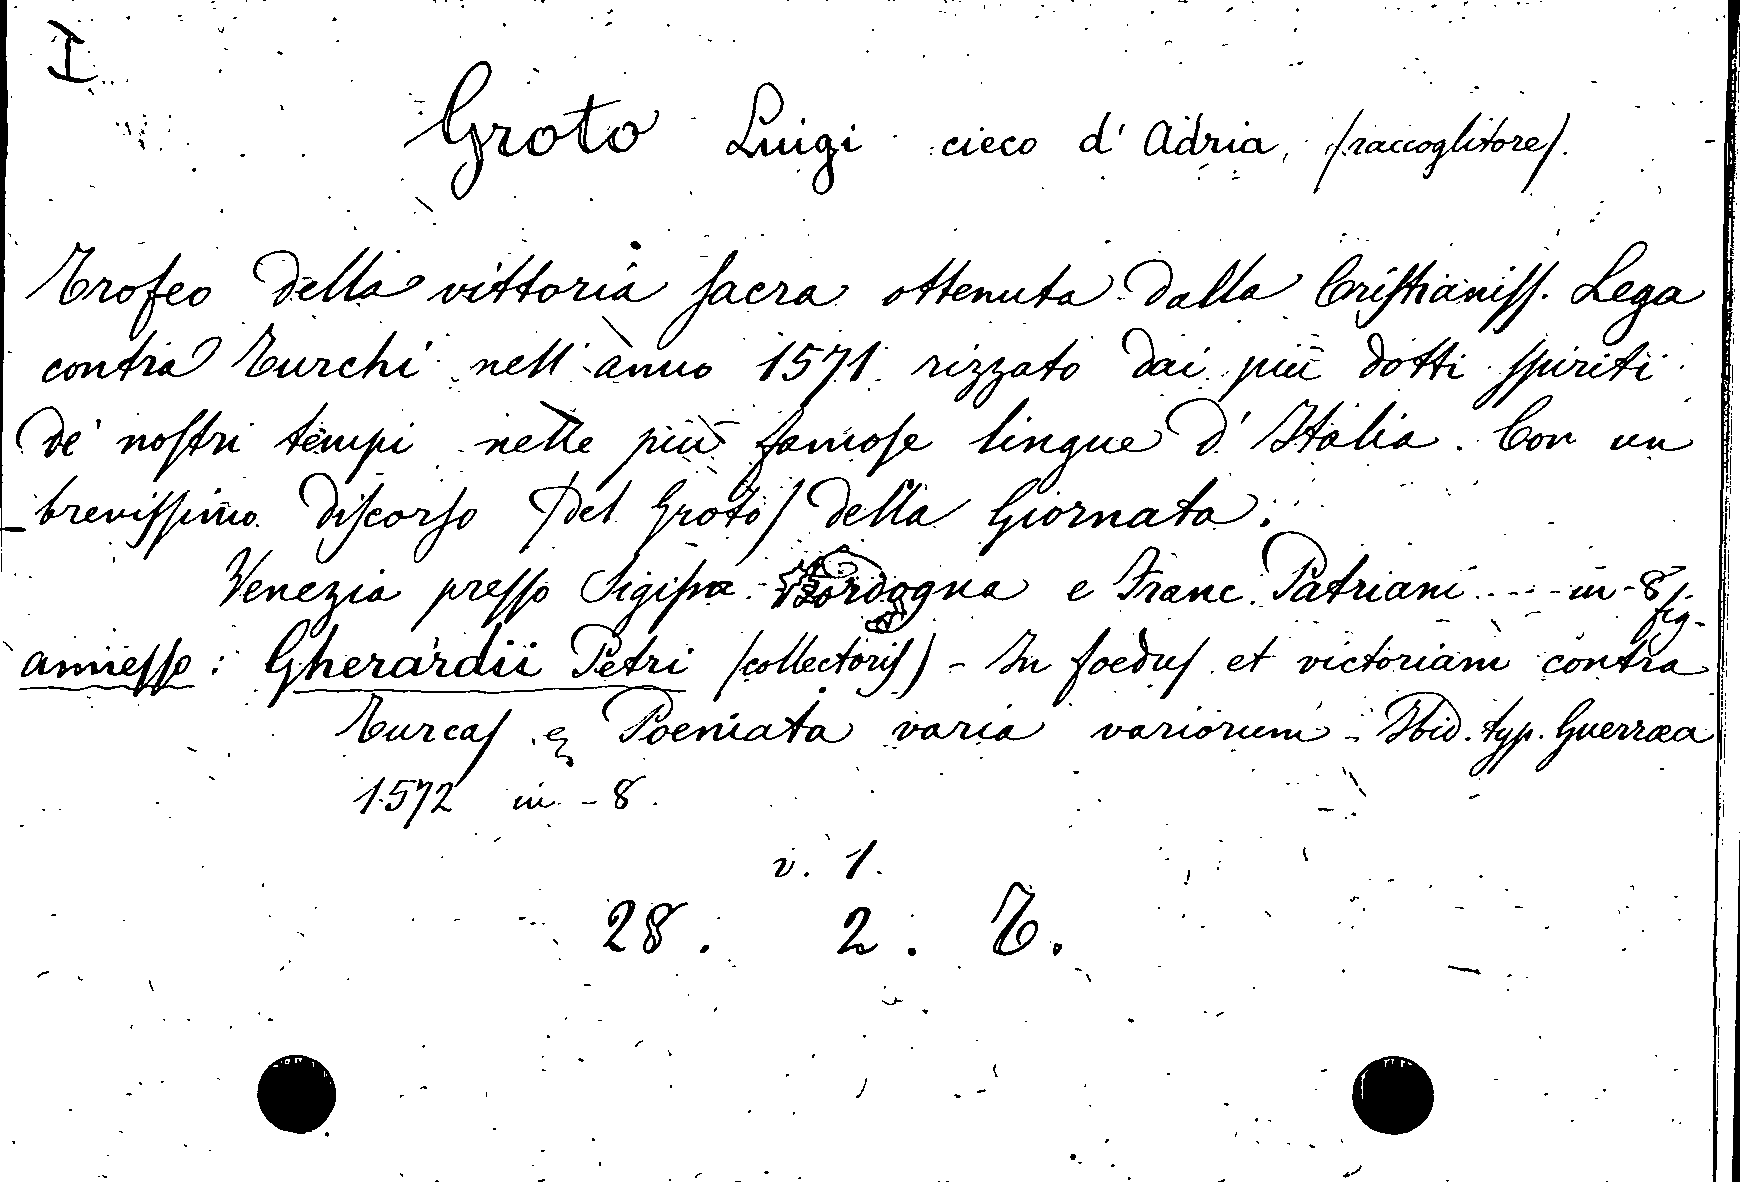 I
Groto Luigi cieco d'Adria, (raccoglitore).
Trofeo della vittoria sacra ottenuta dalla Cristianiss. Lega
contra Turchi nell'anno 1571 rizzato dai più dotti spiriti
de' nostri tempi nelle più famose lingue d'Italia. Con un
brevissimo discorso (del Groto) della Giornata.
Venezia presso Sigism. Bordogna e Franc. Patriani .... in-8 fig.
annesso: Gherardii Petri (collectoris) - In foedus et victoriam contra
Turcas Poemata varia variorum - Ibid. typ. Guerræa
1572 in-8.
v. 1.
28. 2. T.